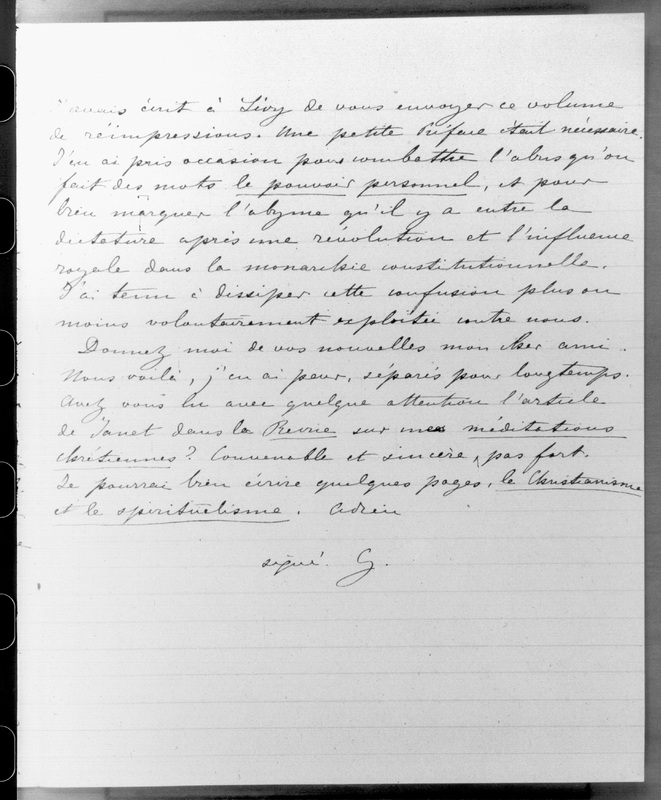 J'avais écrit à Lévy de vous envoyer ce volume
de réimpressions. Une petite Préface était nécessaire.
J'en ai pris occasion pour combattre l'abus qu'on
fait des mots le pouvoir personnel, et pour
bien marquer l'abyme qu'il y a entre la
dictature après une révolution et l'influence
royale dans la monarchie constitutionnelle.
J'ai tenu à dissiper cette confusion plus ou
moins volontairement exploitée contre nous.
Donnez moi de vos nouvelles mon cher ami.
Nous voilà, j'en ai peur, séparés pour longtemps.
Avez vous lu avec quelque attention l'article
de Janet dans la Revue sur mes méditations
chrétiennes? Convenable et sincère, pas fort.
Je pourrai bien écrire quelques pages, le Christianisme
et le spiritualisme. Adieu
signé. G.